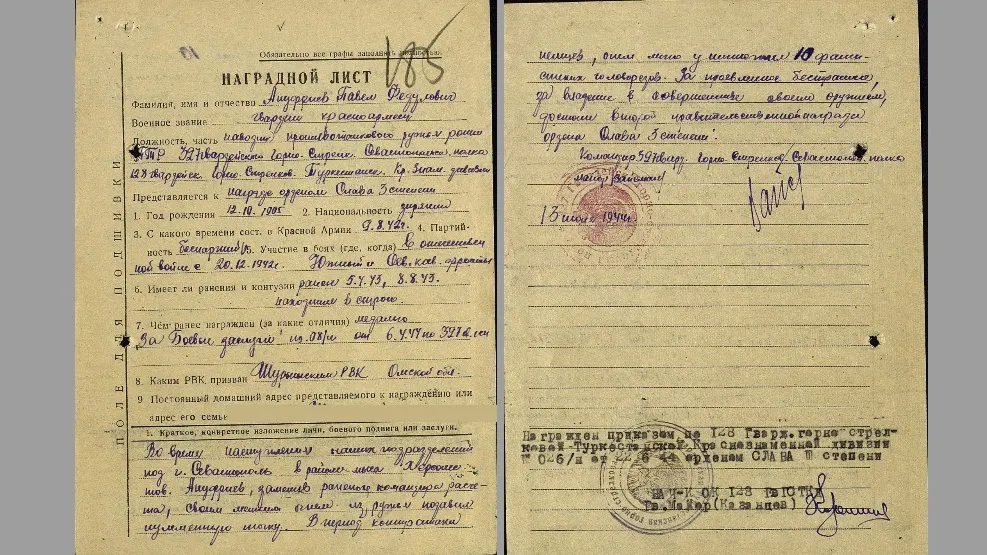 185
Обязательно все графы заполнять полностью.
НАГРАДНОЙ ЛИСТ
Фамилия, имя и отчество Ануфриев Павел Федулович
Военное звание гвардии красноармеец
Должность, часть наводчик противотанкового ружья роты
ПТР 327 гвардейского Горно-Стрелк. Севастопольск. полка
128 гвардейск. Горно Стрелков. Туркестанск. Кр. Знам. дивизии
Представляется к награде орденом Слава 3 степени
1. Год рождения 12.10.1905 2. Национальность
3. С какого времени сост. в Красной Армии 9.8.42г. 4. Партий-
ность беспартийн. 5. Участие в боях (где, когда) В отечествен
ной войне с 20.12.1942г. Южный и Сев. кав. фронты
6. Имеет ли ранения и контузии ранен 5.4.43, 8.8.43.
находится в строю.
7. Чем ранее награжден (за какие отличия) медалью
"За Боевые заслуги" пр. 08/н от 6.4.44 по 327
8. Каким РВК призван РВК Омской обл.
9 Постоянный домашний адрес представляемого к награждению или
адрес его семьи
1. Краткое, конкретное изложение личн. боевого подвига или заслуги.
Во время наступления наших подразделений
под г. Севастополь в районе мыса Херсонес
тов. Ануфриев, заменив раненого командира расче-
та, своим метким огнем из ружья подавил
пулеметную точку. В период контратаки
ПОЛЕ ДЛЯ ПОДШИВКИ
немцев, огнем метко уничтожил 10 фаши-
стских головорезов. За проявленное бесстрашие,
за владение в совершенстве своим оружием,
достоин второй правительственной награды
ордена Слава 3 степени.
Командир 327 гвард. Горно-Стрелков. Севастопол. полка
майор
13 1944г
Награжден приказом по 128 Гвард. горно стрел-
ковой Туркестанской Краснознаменной дивизии
№ 026/н от 22.6.44 орденом СЛАВА III степени
НАЧ-К ОК 128 ГВГСТКД
Гв. майор (Казанцев)